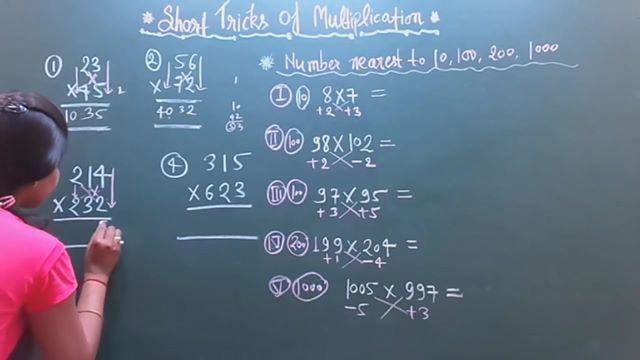 * Short Tricks Of Multiplication *
① 23
× 45 2
1035
② 56
× 72
4032
1
10
42
53
214
× 232
④ 315
× 623
* Number nearest to 10, 100, 200, 1000
I 10 8×7 =
+2 +3
II 100 98×102 =
+2 −2
III 100 97×95 =
+3 +5
IV 200 199×204 =
+1 −4
V 1000 1005×997 =
−5 +3